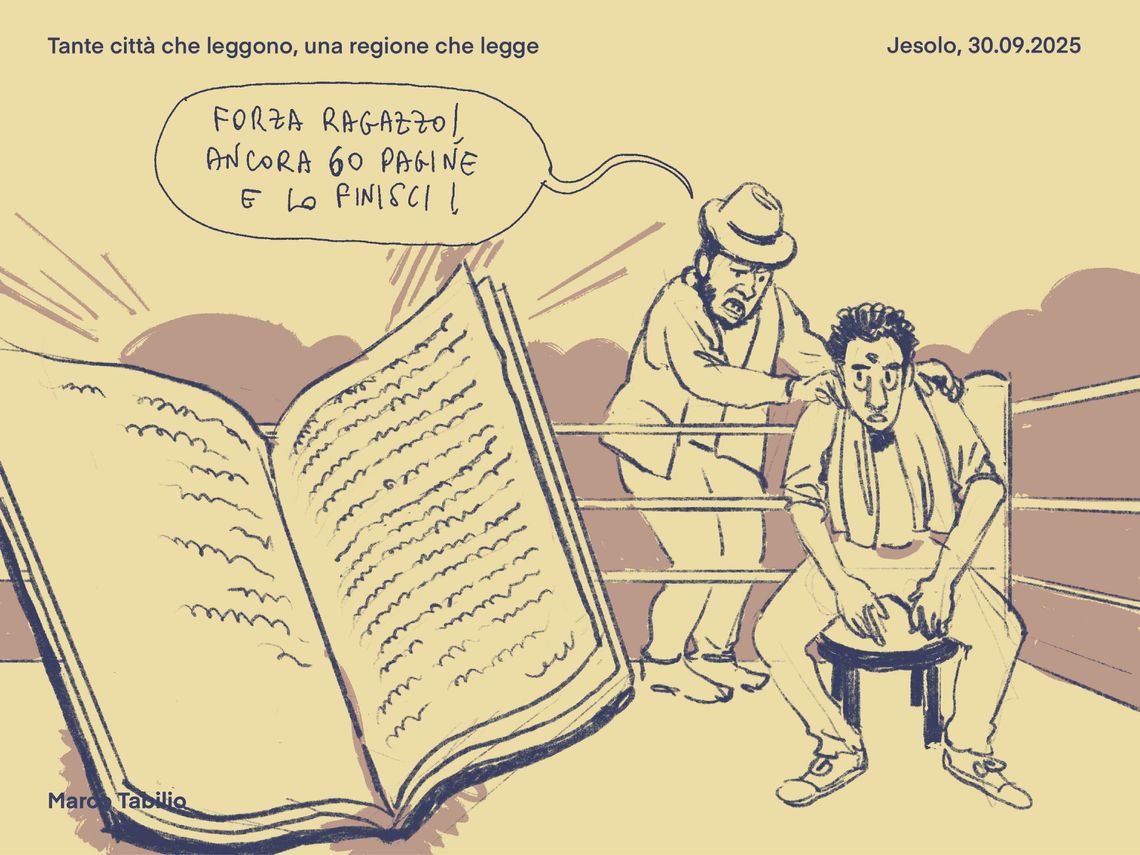 Tante città che leggono, una regione che legge
Jesolo, 30.09.2025
FORZA RAGAZZO!
ANCORA 60 PAGINE
E LO FINISCI!
Marco Tabilio